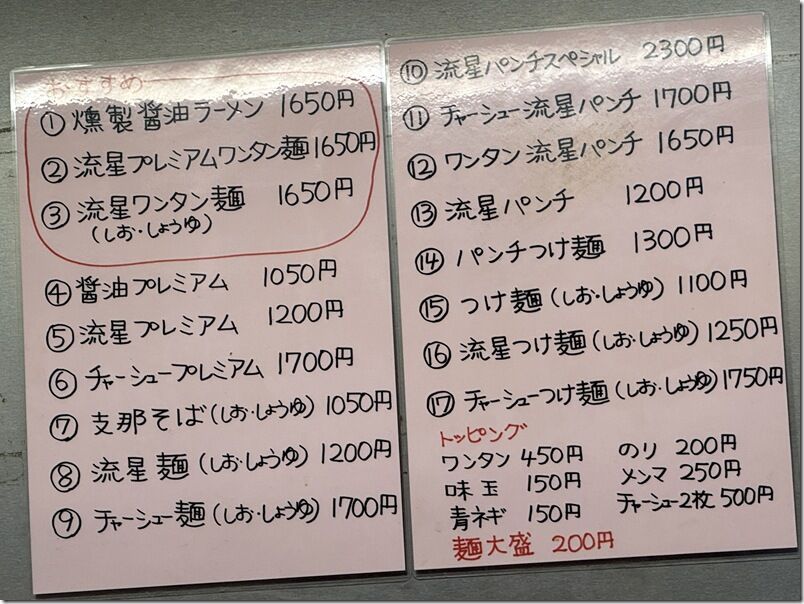 おすすめ
① 燻製醤油ラーメン 1650円
② 流星プレミアムワンタン麺 1650円
③ 流星ワンタン麺 1650円
(しお・しょうゆ)
④ 醤油プレミアム 1050円
⑤ 流星プレミアム 1200円
⑥ チャーシュープレミアム 1700円
⑦ 支那そば(しお・しょうゆ) 1050円
⑧ 流星麺(しお・しょうゆ) 1200円
⑨ チャーシュー麺(しお・しょうゆ) 1700円
⑩ 流星パンチスペシャル 2300円
⑪ チャーシュー流星パンチ 1700円
⑫ ワンタン流星パンチ 1650円
⑬ 流星パンチ 1200円
⑭ パンチつけ麺 1300円
⑮ つけ麺(しお・しょうゆ) 1100円
⑯ 流星つけ麺(しお・しょうゆ) 1250円
⑰ チャーシューつけ麺(しお・しょうゆ) 1750円
トッピング
ワンタン 450円 のり 200円
味玉 150円 メンマ 250円
青ネギ 150円 チャーシュー2枚 500円
麺大盛 200円